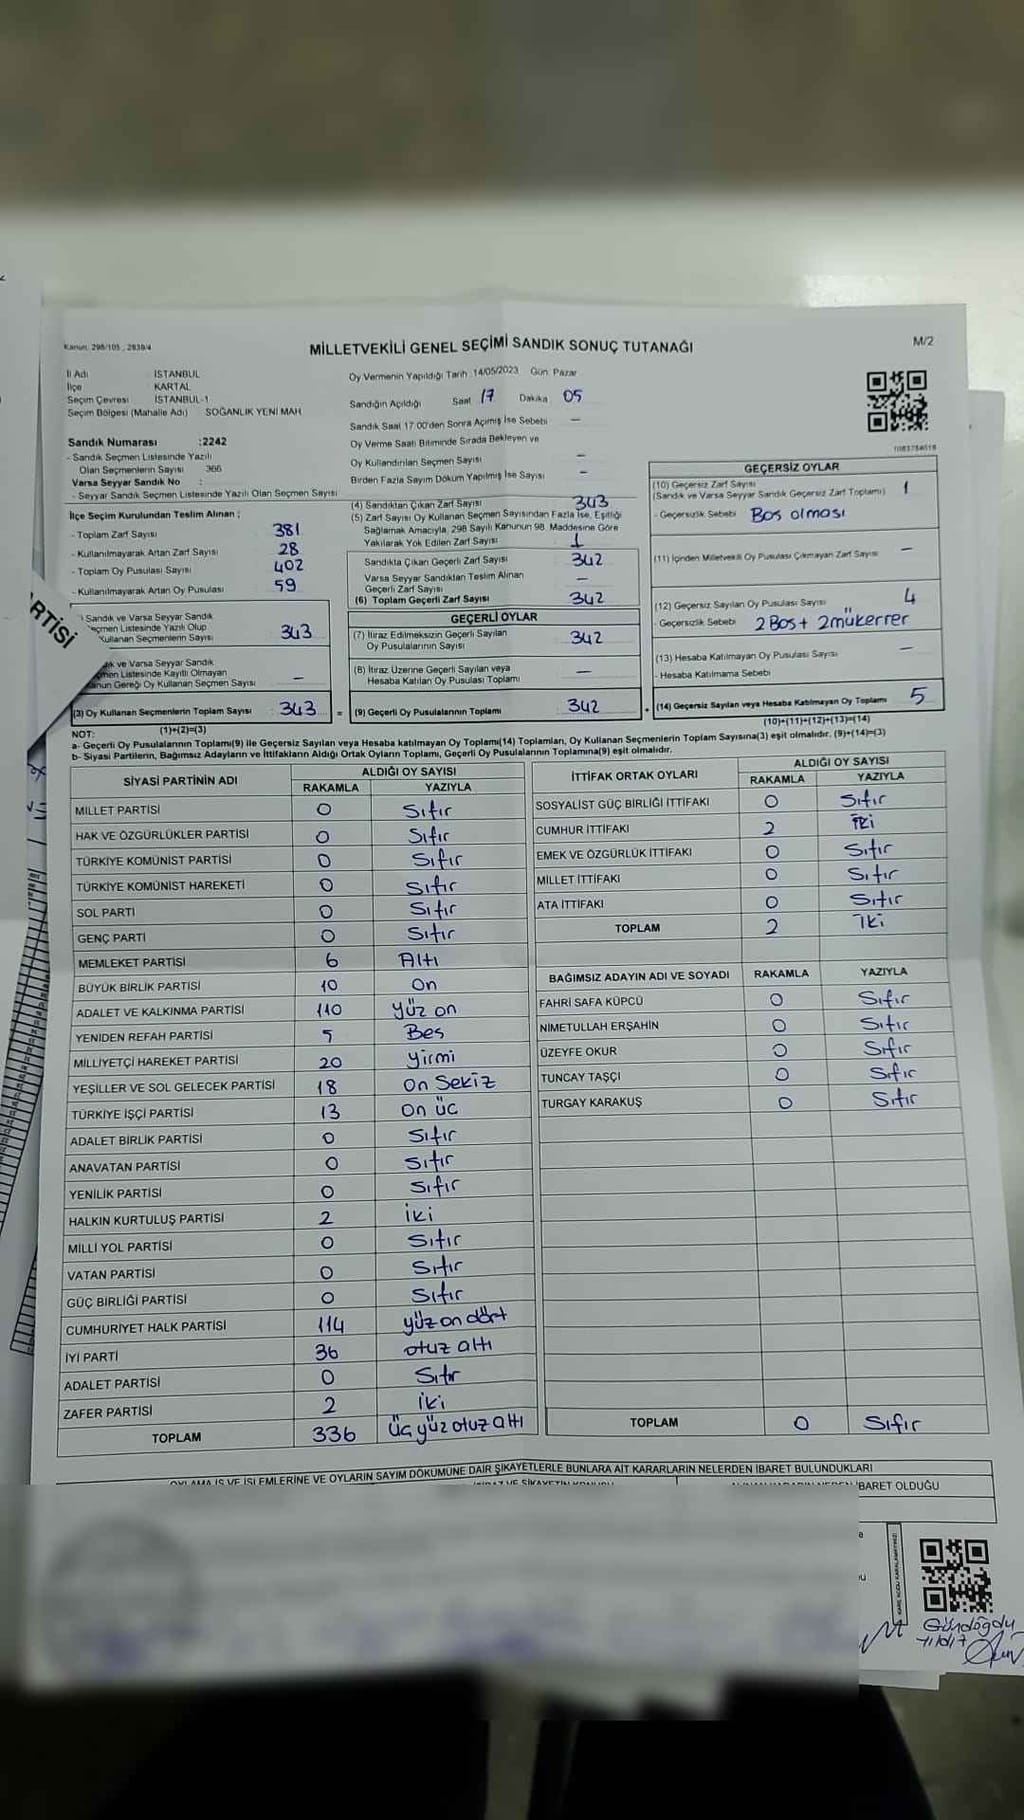 Kanun: 298/105 , 2839/4
MİLLETVEKİLİ GENEL SEÇİMİ SANDIK SONUÇ TUTANAĞI
M/2
İl Adı İSTANBUL
İlçe KARTAL
Seçim Çevresi İSTANBUL-1
Seçim Bölgesi (Mahalle Adı) SOĞANLIK YENİ MAH
Oy Vermenin Yapıldığı Tarih :14/05/2023 Gün: Pazar
Sandığın Açıldığı Saat 17 Dakika 05
Sandık Saat 17:00'den Sonra Açımış İse Sebebi —
Oy Verme Saati Bitiminde Sırada Bekleyen ve
Oy Kullandırılan Seçmen Sayısı —
Birden Fazla Sayım Döküm Yapılmış İse Sayısı —
Sandık Numarası :2242
- Sandık Seçmen Listesinde Yazılı
Olan Seçmenlerin Sayısı 366
Varsa Seyyar Sandık No :
- Seyyar Sandık Seçmen Listesinde Yazılı Olan Seçmen Sayısı
İlçe Seçim Kurulundan Teslim Alınan ;
- Toplam Zarf Sayısı 381
- Kullanılmayarak Artan Zarf Sayısı 28
- Toplam Oy Pusulası Sayısı 402
- Kullanılmayarak Artan Oy Pusulası 59
RTİSİ
) Sandık ve Varsa Seyyar Sandık
eçmen Listesinde Yazılı Olup
Kullanan Seçmenlerin Sayısı 343
ık ve Varsa Seyyar Sandık
men Listesinde Kayıtlı Olmayan
anun Gereği Oy Kullanan Seçmen Sayısı —
(3) Oy Kullanan Seçmenlerin Toplam Sayısı : 343 =
(1)+(2)=(3)
(4) Sandıktan Çıkan Zarf Sayısı 343
(5) Zarf Sayısı Oy Kullanan Seçmen Sayısından Fazla İse, Eşitliği
Sağlamak Amacıyla, 298 Sayılı Kanunun 98. Maddesine Göre
Yakılarak Yok Edilen Zarf Sayısı 1
Sandıkta Çıkan Geçerli Zarf Sayısı 342
Varsa Seyyar Sandıktan Teslim Alınan
Geçerli Zarf Sayısı —
(6) Toplam Geçerli Zarf Sayısı 342
GEÇERLİ OYLAR
(7) İtiraz Edilmeksizin Geçerli Sayılan
Oy Pusulalarının Sayısı 342
(8) İtiraz Üzerine Geçerli Sayılan veya
Hesaba Katılan Oy Pusulası Toplamı —
(9) Geçerli Oy Pusulalarının Toplamı 342 +
GEÇERSİZ OYLAR
(10) Geçersiz Zarf Sayısı
(Sandık ve Varsa Seyyar Sandık Geçersiz Zarf Toplamı) 1
- Geçersizlik Sebebi Bos olması
(11) İçinden Milletvekili Oy Pusulası Çıkmayan Zarf Sayısı —
(12) Geçersiz Sayılan Oy Pusulası Sayısı 4
- Geçersizlik Sebebi 2 Bos + 2 mükerrer
(13) Hesaba Katılmayan Oy Pusulası Sayısı —
- Hesaba Katılmama Sebebi
(14) Geçersiz Sayılan veya Hesaba Katılmayan Oy Toplamı 5
(10)+(11)+(12)+(13)=(14)
NOT:
a- Geçerli Oy Pusulalarının Toplamı(9) ile Geçersiz Sayılan veya Hesaba katılmayan Oy Toplamı(14) Toplamları, Oy Kullanan Seçmenlerin Toplam Sayısına(3) eşit olmalıdır. (9)+(14)=(3)
b- Siyasi Partilerin, Bağımsız Adayların ve İttifakların Aldığı Ortak Oyların Toplamı, Geçerli Oy Pusulalarının Toplamına(9) eşit olmalıdır.
SİYASİ PARTİNİN ADI ALDIĞI OY SAYISI
RAKAMLA YAZIYLA
MİLLET PARTİSİ 0 Sıfır
HAK VE ÖZGÜRLÜKLER PARTİSİ 0 Sıfır
TÜRKİYE KOMÜNİST PARTİSİ 0 Sıfır
TÜRKİYE KOMÜNİST HAREKETİ 0 Sıfır
SOL PARTİ 0 Sıfır
GENÇ PARTİ 0 Sıfır
MEMLEKET PARTİSİ 6 Altı
BÜYÜK BİRLİK PARTİSİ 10 On
ADALET VE KALKINMA PARTİSİ 110 yüz on
YENİDEN REFAH PARTİSİ 5 Bes
MİLLİYETÇİ HAREKET PARTİSİ 20 yirmi
YEŞİLLER VE SOL GELECEK PARTİSİ 18 on Sekiz
TÜRKİYE İŞÇİ PARTİSİ 13 on üc
ADALET BİRLİK PARTİSİ 0 Sıfır
ANAVATAN PARTİSİ 0 Sıfır
YENİLİK PARTİSİ 0 Sıfır
HALKIN KURTULUŞ PARTİSİ 2 iki
MİLLİ YOL PARTİSİ 0 Sıfır
VATAN PARTİSİ 0 Sıfır
GÜÇ BİRLİĞİ PARTİSİ 0 Sıfır
CUMHURİYET HALK PARTİSİ 114 yüz on dört
İYİ PARTİ 36 otuz altı
ADALET PARTİSİ 0 Sıfır
ZAFER PARTİSİ 2 iki
TOPLAM 336 üç yüz otuz altı
İTTİFAK ORTAK OYLARI ALDIĞI OY SAYISI
RAKAMLA YAZIYLA
SOSYALİST GÜÇ BİRLİĞİ İTTİFAKI 0 Sıfır
CUMHUR İTTİFAKI 2 iki
EMEK VE ÖZGÜRLÜK İTTİFAKI 0 Sıfır
MİLLET İTTİFAKI 0 Sıfır
ATA İTTİFAKI 0 Sıfır
TOPLAM 2 iki
BAĞIMSIZ ADAYIN ADI VE SOYADI RAKAMLA YAZIYLA
FAHRİ SAFA KÜPCÜ 0 Sıfır
NİMETULLAH ERŞAHİN 0 Sıfır
ÜZEYFE OKUR 0 Sıfır
TUNCAY TAŞÇI 0 Sıfır
TURGAY KARAKUŞ 0 Sıfır
TOPLAM 0 Sıfır
OYLAMA İŞ VE İŞLEMLERİNE VE OYLARIN SAYIM DÖKÜMÜNE DAİR ŞİKAYETLERLE BUNLARA AİT KARARLARIN NELERDEN İBARET BULUNDUKLARI
İBARET OLDUĞU
Gündoğdu